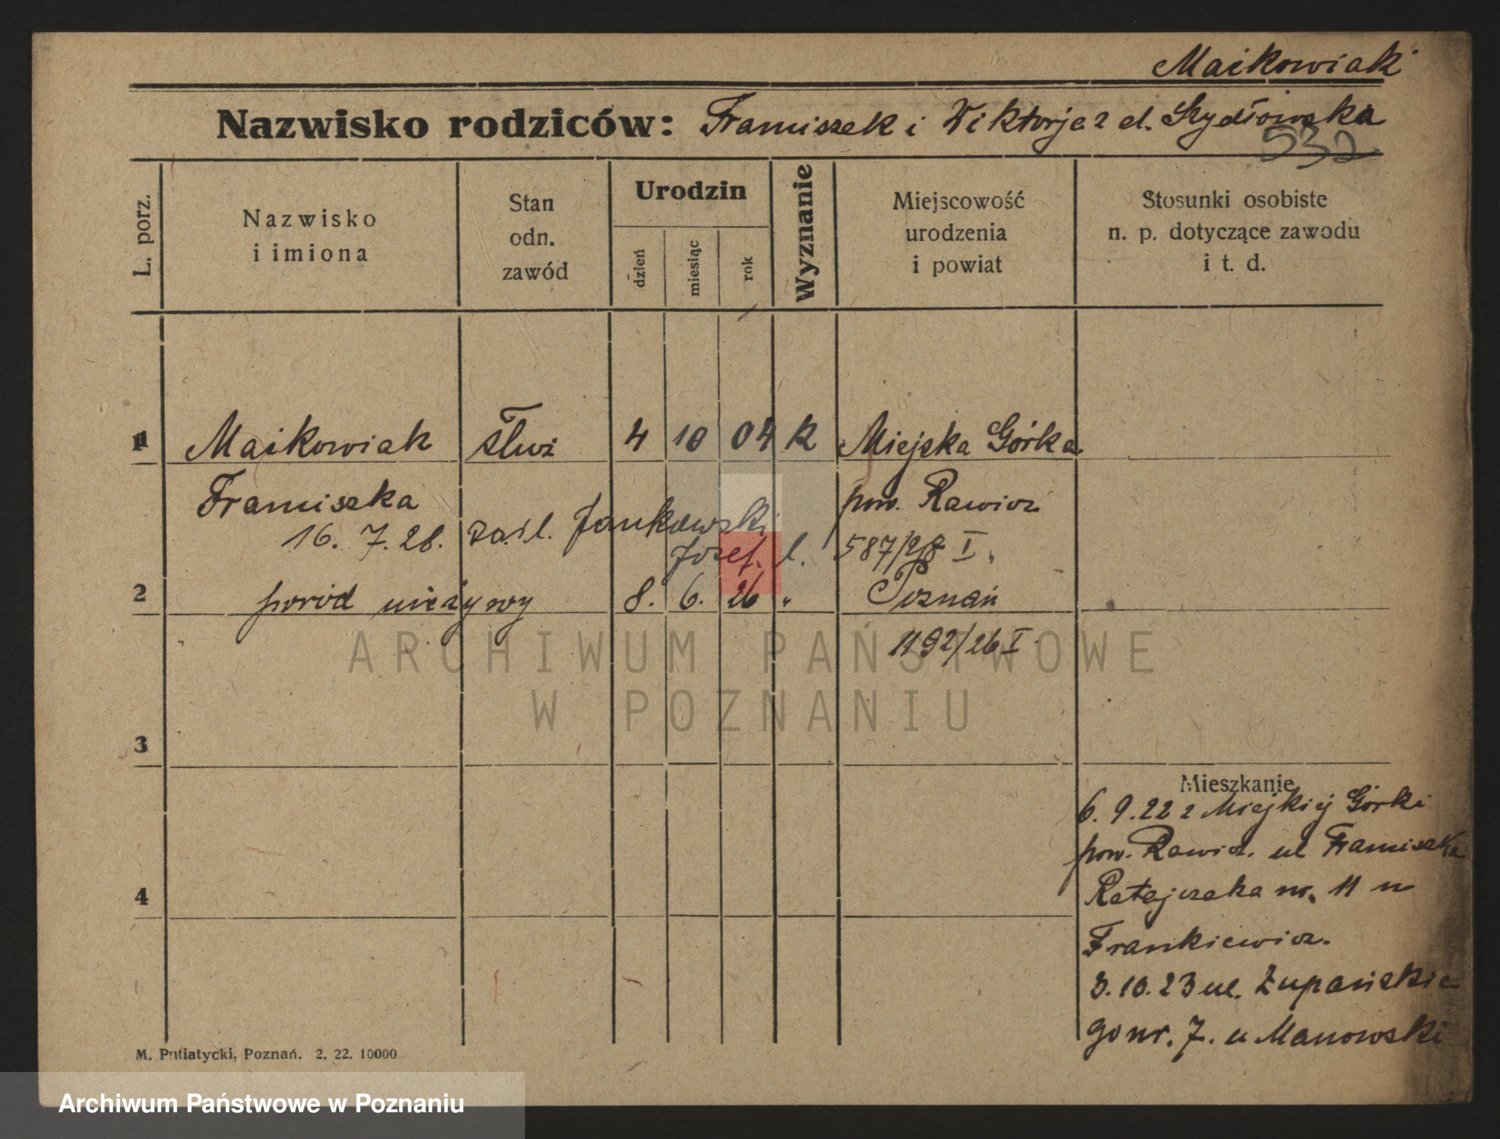 Maikowiak
Nazwisko rodziców: Franciszek i Wiktorja z d. Szydłowska
532
L. porz.
Nazwisko
i imiona
Stan
odn.
zawód
Urodzin
dzień
miesiąc
rok
Wyznanie
Miejscowość
urodzenia
i powiat
Stosunki osobiste
n. p. dotyczące zawodu
i t. d.
1 Maikowiak służ 4 10 04 k Miejska Górka
Franciszka pow. Rawicz
16. 7. 28. zaśl. Jankowski
Józef. 587/28 I.
2 poród nieżywy 8. 6. 26 " Poznań
1192/26 I
3
Mieszkanie
6. 9. 22 z Miejskiej Górki
pow. Rawicz. ul Franciszka
4
Ratajczaka nr. 11 u
Frankiewicz.
3. 10. 23 ul. Żupańskie
go nr. 7. u Manowski
M. Putiatycki, Poznań. 2. 22. 10000
ARCHIWUM PAŃSTWOWE
W POZNANIU
Archiwum Państwowe w Poznaniu